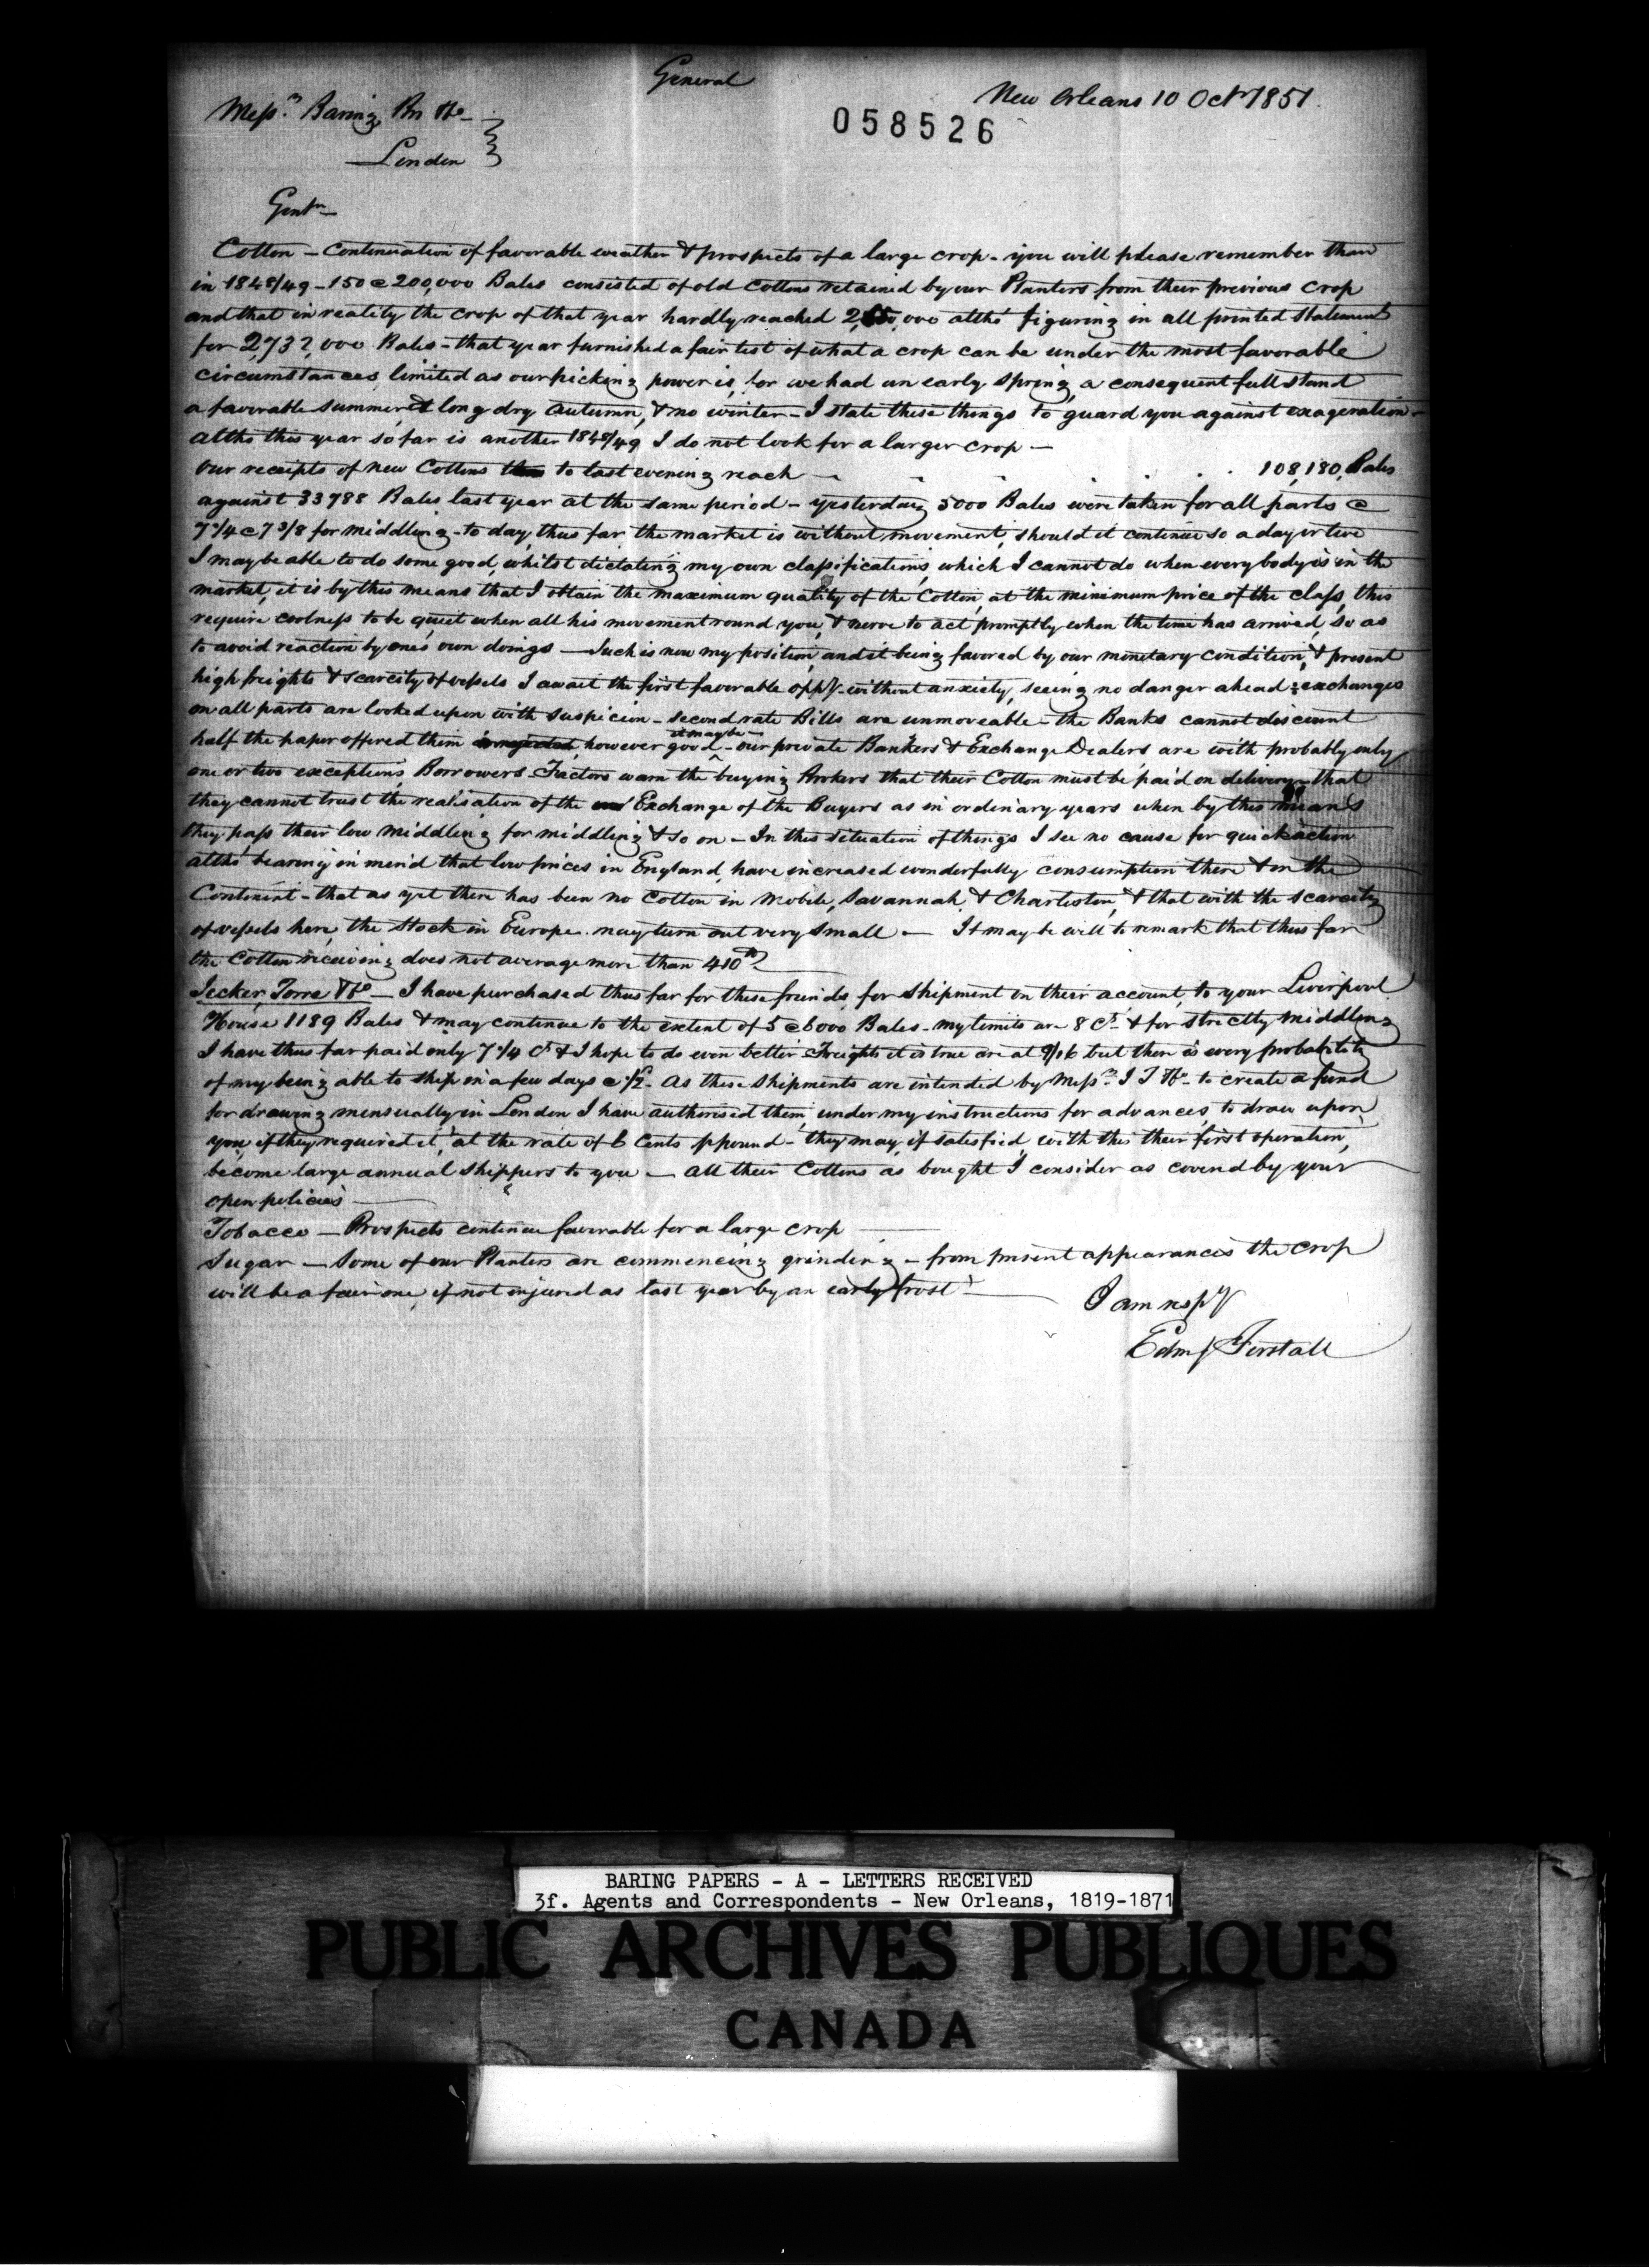 General
New Orleans 10 Octr 1851
Messrs. Baring Brs & Co
058526
London
Gentn
Cotton - Continuation of favorable weather & prospects of a large crop - you will please remember than
in 1848/49 - 150 @ 200,000 Bales consisted of old Cottons retained by our Planters from their previous crop
and that in reality the crop of that year hardly reached 2, ,000 altho' figuring in all printed statements
for 2,732,000 Bales - that year furnished a fair test of what a crop can be under the most favorable
circumstances, limited as our picking power is, for we had an early spring, a consequent full stand
a favorable summer & long dry autumn, & no winter - I state these things to guard you against exageration -
altho this year so far is another 1848/49 I do not look for a larger crop -
Our receipts of new Cottons to last evening reach - 108,180 Bales
against 33788 Bales last year at the same period - yesterday 5000 Bales were taken for all parts @
7 1/4 @ 7 3/8 for middling - to day, thus far the market is without movement, should it continue so a day or two
I may be able to do some good, whilst dictating my own classifications, which I cannot do when every body is in the
market, it is by this means that I obtain the maximum quality of the Cotton, at the minimum price of the class, this
require coolness to be quiet when all his movement round you, & nerve to act promptly when the time has arrived, so as
to avoid reaction by one's own doings - Such is now my position, and it being favored by our monetary condition, & present
high freights & scarcity of vessels I await the first favorable oppy - without anxiety, seeing no danger ahead : exchanges
on all parts are looked upon with suspicion - second rate Bills are unmoveable - the Banks cannot discount
half the paper offered them however good it may be - our private Bankers & Exchange Dealers are with probably only
one or two exceptions, Borrowers. Factors warn the buying Brokers that their Cotton must be paid on delivery - that
they cannot trust the realisation of the Exchange of the Buyers as in ordinary years when by this means
they pass their low middling for middling & so on - In this situation of things I see no cause for quick action
altho' bearing in mind that low prices in England, have increased wonderfully consumption there & on the
Continent - that as yet there has been no Cotton in Mobile, Savannah & Charleston, & that with the scarcity
of vessels here, the Stock in Europe may turn out very small - It may be well to remark that thus far
the Cotton receiving does not average more than 410 lb
Jecker, Torre & Co - I have purchased thus far for these friends, for shipment on their account, to your Liverpool
House 1189 Bales & may continue to the extent of 5 @ 6000 Bales - my limits are 8 Cts & for strictly middling
I have thus far paid only 7 1/4 Cts & I hope to do even better. Freights it is true are at 9/16 but there is every probability
of my being able to ship in a few days @ 1/2 - As these shipments are intended by Messrs J T & Co - to create a fund
for drawing mensually in London I have authorised them, under my instructions for advances, to draw upon
you, if they required it, at the rate of 6 Cents p pound - they may, if satisfied with this their first operation,
become large annual shippers to you - All their Cottons as bought I consider as covered by your
open policies
Tobacco - Prospects continue favorable for a large crop
Sugar - Some of our Planters are commencing grinding - from present appearances the crop
will be a fair one, if not injured as last year by an early frost -
I am respy
Edm J Forstall
BARING PAPERS - A - LETTERS RECEIVED
3f. Agents and Correspondents - New Orleans, 1819-1871
PUBLIC ARCHIVES PUBLIQUES
CANADA